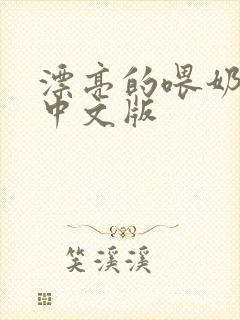 漂亮的喂奶
中文版
笑溪溪